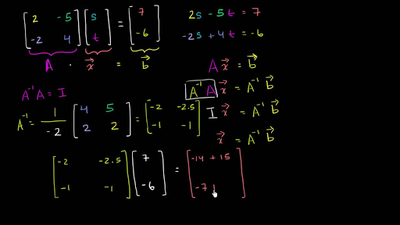 [2 -5; -2 4] [s; t] = [7; -6]
2s - 5t = 7
-2s + 4t = -6
A · x⃗ = b⃗
A x⃗ = b⃗
A⁻¹A = I
A⁻¹ A x⃗ = A⁻¹ b⃗
A⁻¹ = 1/-2 [4 5; 2 2] = [-2 -2.5; -1 -1]
I x⃗ = A⁻¹ b⃗
x⃗ = A⁻¹ b⃗
[-2 -2.5; -1 -1] [7; -6] = [-14 + 15; -7]